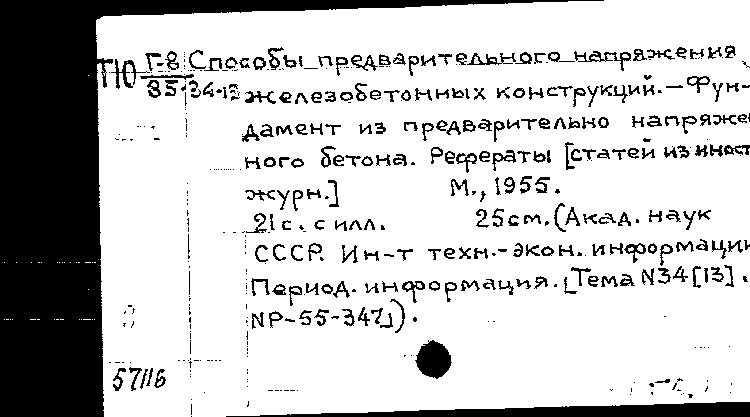 Т10 Г-8 Способы предварительного напряжения
85-34-13 железобетонных конструкций.-Фун-
дамент из предварительно напряже
ного бетона. Рефераты [статей из иност
журн.] М., 1955.
21 с. с илл. 25 см. (Акад. наук
СССР. Ин-т техн.-экон. информации
Период. информация. [Тема N34[13].
NР-55-347]).
57116